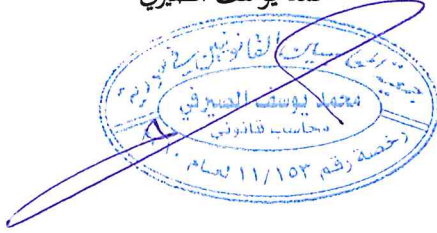 محمد يوسف الصيرفي
جمعية المحاسبين القانونيين في سورية
محمد يوسف الصيرفي
محاسب قانوني
رخصة رقم ١١/١٥٣ لعام